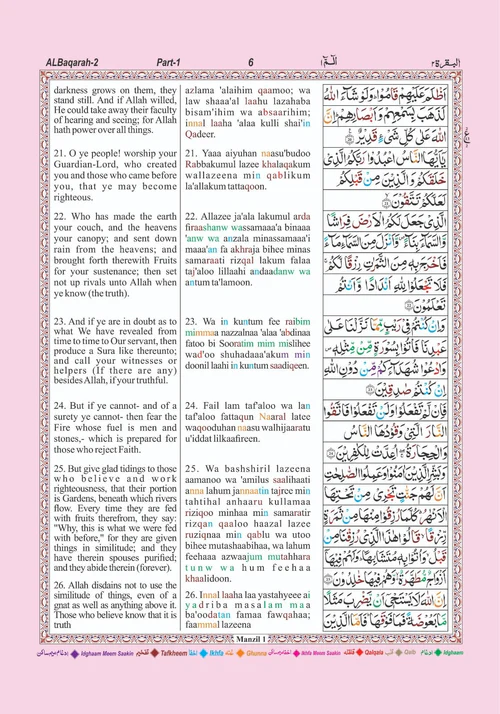 ALBaqarah-2 Part-1 6 الٓمّٓ ١ البقرة ٢
darkness grows on them, they
stand still. And if Allah willed,
He could take away their faculty
of hearing and seeing; for Allah
hath power over all things.
21. O ye people! worship your
Guardian-Lord, who created
you and those who came before
you, that ye may become
righteous.
22. Who has made the earth
your couch, and the heavens
your canopy; and sent down
rain from the heavens; and
brought forth therewith Fruits
for your sustenance; then set
not up rivals unto Allah when
ye know (the truth).
23. And if ye are in doubt as to
what We have revealed from
time to time to Our servant, then
produce a Sura like thereunto;
and call your witnesses or
helpers (If there are any)
besides Allah, if your truthful.
24. But if ye cannot- and of a
surety ye cannot- then fear the
Fire whose fuel is men and
stones,- which is prepared for
those who reject Faith.
25. But give glad tidings to those
who believe and work
righteousness, that their portion
is Gardens, beneath which rivers
flow. Every time they are fed
with fruits therefrom, they say:
"Why, this is what we were fed
with before," for they are given
things in similitude; and they
have therein spouses purified;
and they abide therein (forever).
26. Allah disdains not to use the
similitude of things, even of a
gnat as well as anything above it.
Those who believe know that it is
truth
azlama 'alaihim qaamoo; wa
law shaaa'al laahu lazahaba
bisam'ihim wa absaarihim;
innal laaha 'alaa kulli shai'in
Qadeer.
21. Yaaa aiyuhan naasu'budoo
Rabbakumul lazee khalaqakum
wallazeena min qablikum
la'allakum tattaqoon.
22. Allazee ja'ala lakumul arda
firaashanw wassamaaa'a binaaa
'anw wa anzala minassamaaa'i
maaa'an fa akhraja bihee minas
samaraati rizqal lakum falaa
taj'aloo lillaahi andaadanw wa
antum ta'lamoon.
23. Wa in kuntum fee raibim
mimmaa nazzalnaa 'alaa 'abdinaa
fatoo bi Sooratim mim mislihee
wad'oo shuhadaaa'akum min
doonil laahi in kuntum saadiqeen.
24. Fail lam taf'aloo wa lan
taf'aloo fattaqun Naaral latee
waqooduhan naasu walhijaaratu
u'iddat lilkaafireen.
25. Wa bashshiril lazeena
aamanoo wa 'amilus saalihaati
anna lahum jannaatin tajree min
tahtihal anhaaru kullamaa
riziqoo minhaa min samaratir
rizqan qaaloo haazal lazee
ruziqnaa min qablu wa utoo
bihee mutashaabihaa, wa lahum
feehaaa azwaajum mutahhara
tunw wa hum feehaa
khaalidoon.
26. Innal laaha laa yastahyeee ai
yadriba masalam maa
ba'oodatan famaa fawqahaa;
faammal lazeena
اَظْلَمَ عَلَيْهِمْ قَامُوْا ؕ وَلَوْ شَآءَ اللّٰهُ
لَذَهَبَ بِسَمْعِهِمْ وَاَبْصَارِهِمْ ؕ اِنَّ
اللّٰهَ عَلٰى كُلِّ شَىْءٍ قَدِيْرٌ ﴿۲۰﴾
يٰٓاَيُّهَا النَّاسُ اعْبُدُوْا رَبَّكُمُ الَّذِىْ
خَلَقَكُمْ وَالَّذِيْنَ مِنْ قَبْلِكُمْ
لَعَلَّكُمْ تَتَّقُوْنَ ﴿۲۱﴾
الَّذِىْ جَعَلَ لَكُمُ الْاَرْضَ فِرَاشًا
وَّالسَّمَآءَ بِنَآءً ۪ وَّاَنْزَلَ مِنَ السَّمَآءِ مَآءً
فَاَخْرَجَ بِهٖ مِنَ الثَّمَرٰتِ رِزْقًا لَّكُمْ ۚ
فَلَا تَجْعَلُوْا لِلّٰهِ اَنْدَادًا وَّاَنْتُمْ
تَعْلَمُوْنَ ﴿۲۲﴾
وَاِنْ كُنْتُمْ فِىْ رَيْبٍ مِّمَّا نَزَّلْنَا عَلٰى
عَبْدِنَا فَاْتُوْا بِسُوْرَةٍ مِّنْ مِّثْلِهٖ ۪
وَادْعُوْا شُهَدَآءَكُمْ مِّنْ دُوْنِ اللّٰهِ
اِنْ كُنْتُمْ صٰدِقِيْنَ ﴿۲۳﴾
فَاِنْ لَّمْ تَفْعَلُوْا وَلَنْ تَفْعَلُوْا فَاتَّقُوا
النَّارَ الَّتِىْ وَقُوْدُهَا النَّاسُ
وَالْحِجَارَةُ ۖۚ اُعِدَّتْ لِلْكٰفِرِيْنَ ﴿۲۴﴾
وَبَشِّرِ الَّذِيْنَ اٰمَنُوْا وَعَمِلُوا الصّٰلِحٰتِ
اَنَّ لَهُمْ جَنّٰتٍ تَجْرِىْ مِنْ تَحْتِهَا
الْاَنْهٰرُ ؕ كُلَّمَا رُزِقُوْا مِنْهَا مِنْ ثَمَرَةٍ
رِّزْقًا ۙ قَالُوْا هٰذَا الَّذِىْ رُزِقْنَا مِنْ
قَبْلُ ۙ وَاُتُوْا بِهٖ مُتَشَابِهًا ؕ وَلَهُمْ فِيْهَآ
اَزْوَاجٌ مُّطَهَّرَةٌ ۙ وَّهُمْ فِيْهَا خٰلِدُوْنَ ﴿۲۵﴾
اِنَّ اللّٰهَ لَا يَسْتَحْىٖٓ اَنْ يَّضْرِبَ مَثَلًا
مَّا بَعُوْضَةً فَمَا فَوْقَهَا ؕ فَاَمَّا الَّذِيْنَ
Manzil 1
ادغام میم ساکن Idghaam Meem Saakin تفخیم Tafkheem اخفا Ikhfa غنه Ghunna اخفا میم ساکن Ikhfa Meem Saakin قلقله Qalqala قلب Qalb ادغام Idghaam